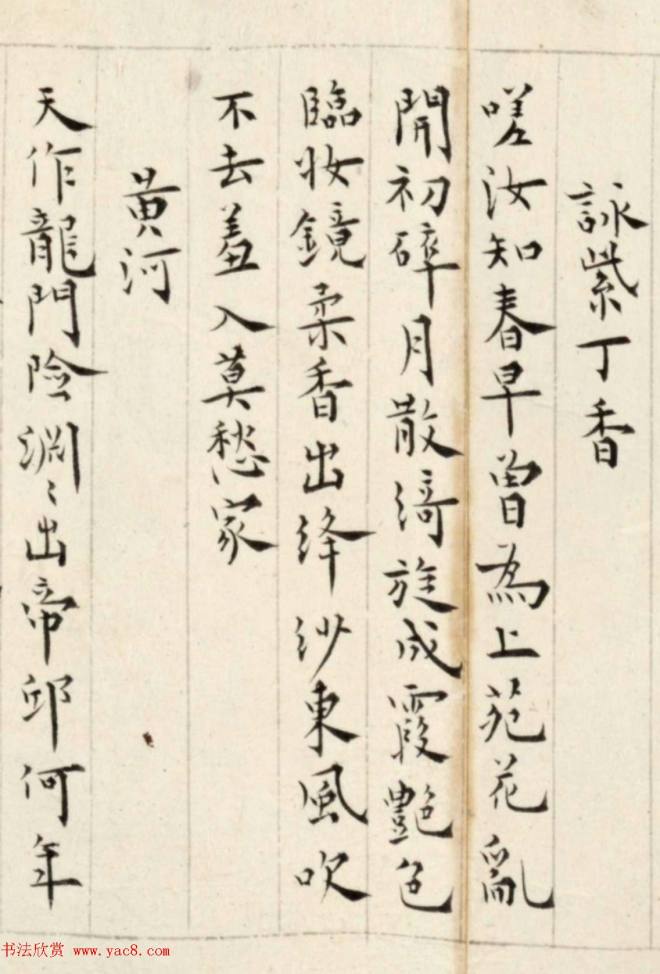 詠紫丁香
嗟汝知春早曾為上苑花亂
開初碎月散綺旋成霞艷色
臨妝鏡柔香出絳紗東風吹
不去羞入莫愁家
黃河
天作龍門險淵〻出帝邱何年
书法欣赏 www.yac8.com